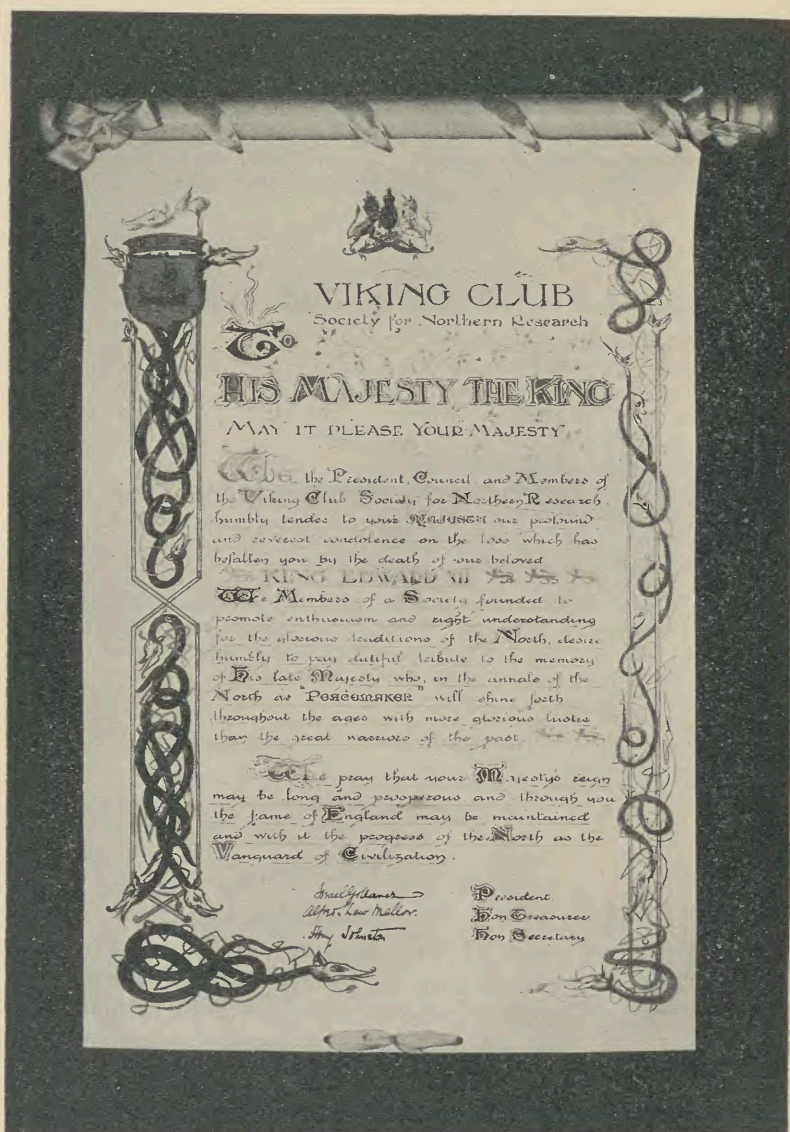 VIKING CLUB
Society for Northern Research
To
HIS MAJESTY THE KING
MAY IT PLEASE YOUR MAJESTY
We, the President, Council and Members of
the Viking Club Society for Northern Research
humbly tender to your MAJESTY our profound
and reverent condolence on the loss which has
befallen you by the death of our beloved
KING EDWARD VII
We Members of a Society founded to
promote enthusiasm and right understanding
for the glorious traditions of the North, desire
humbly to pay dutiful tribute to the memory
of His late Majesty who, in the annals of the
North as "PEACEMAKER" will shine forth
throughout the ages with more glorious lustre
than the great warriors of the past.
We pray that your Majesty's reign
may be long and prosperous and through you
the fame of England may be maintained
and with it the progress of the North as the
Vanguard of Civilization.
Israel Gollancz President.
Alfred Law Mellor. Hon Treasurer
Johnston Hon Secretary